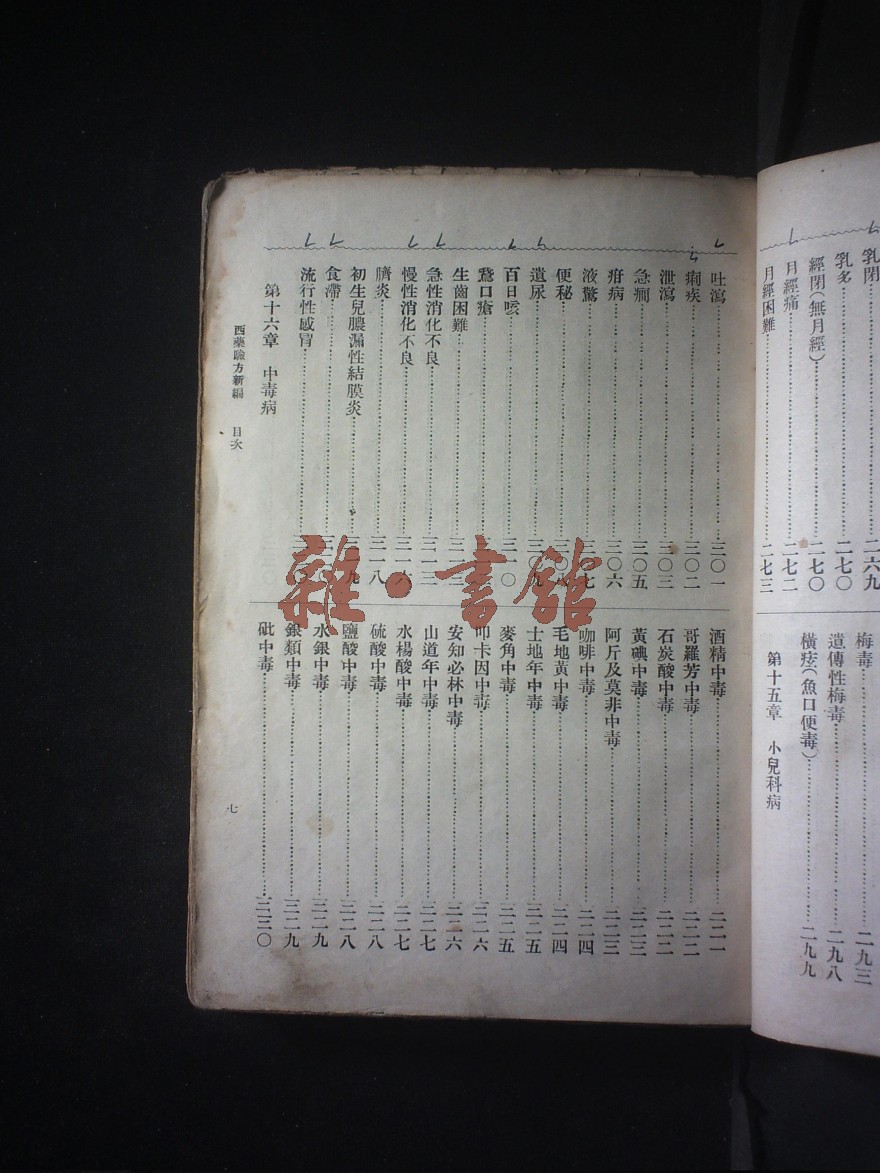 乳閉……二六九
乳多……二七〇
經閉(無月經)……二七〇
月經痛……二七二
月經困難……二七三
梅毒……二九三
遺傳性梅毒……二九八
橫痃(魚口便毒)……二九九
第十五章 小兒科病
吐瀉……三〇一
痢疾……三〇二
泄瀉……三〇三
急癇……三〇五
疳病……三〇六
液驚……三〇七
便秘……三〇八
遺尿……三〇九
百日咳……三一〇
鵞口瘡……
生齒困難……
急性消化不良……三一三
慢性消化不良……三一六
臍炎……三一八
初生兒膿漏性結膜炎……三一九
食滯……
流行性感冒……
第十六章 中毒病
酒精中毒……三二一
哥羅芳中毒……三二二
石炭酸中毒……三二二
黃碘中毒……三二三
阿斤及莫非中毒……三二三
咖啡中毒……三二四
毛地黃中毒……三二四
士地年中毒……三二五
麥角中毒……三二五
叩卡因中毒……三二六
安知必林中毒……三二六
山道年中毒……三二七
水楊酸中毒……三二七
硫酸中毒……三二八
鹽酸中毒……三二八
水銀中毒……三二九
銀類中毒……三二九
砒中毒……三三〇
西藥驗方新編 目次
七
雜·書館